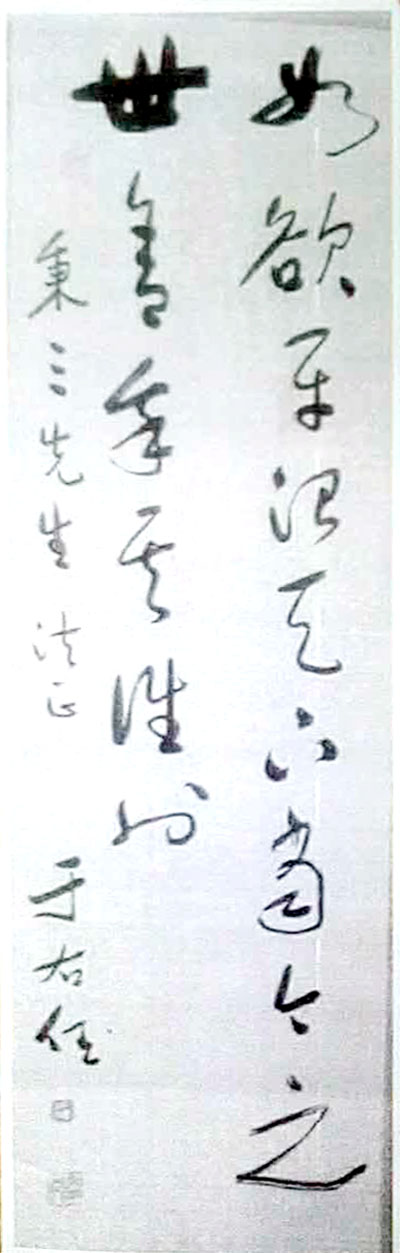 如欲平治天下當今之
世舍我其誰也
秉三先生法正
于右任